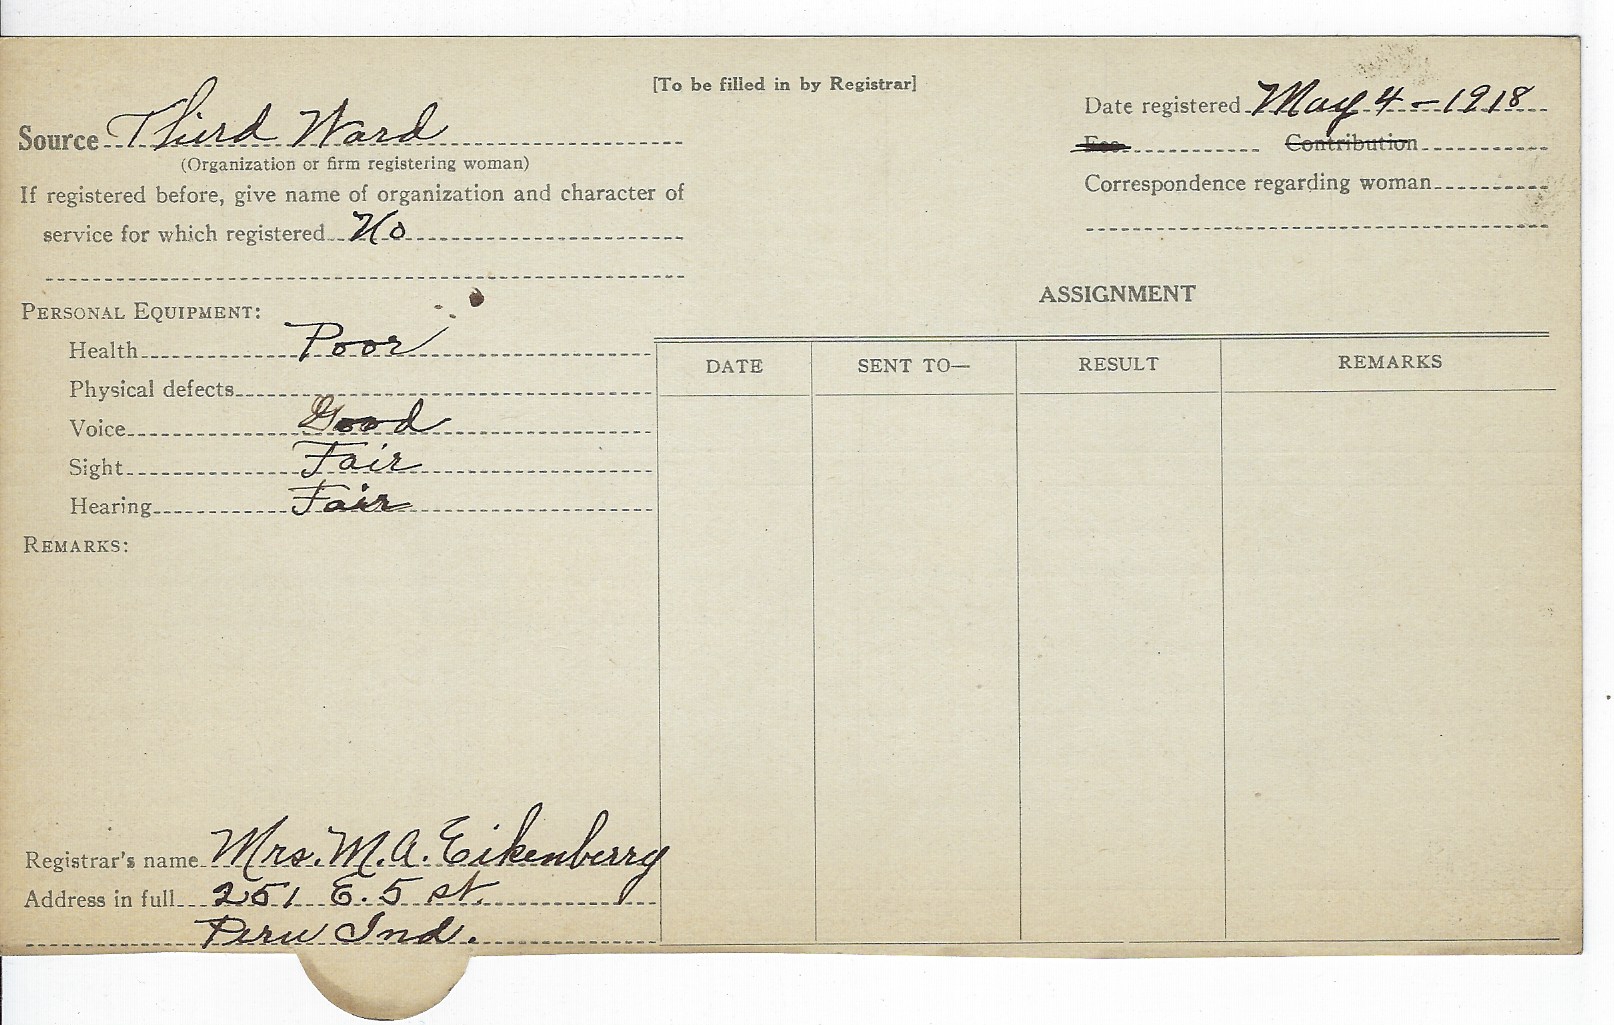 [To be filled in by Registrar]
Source Third Ward
(Organization or firm registering woman)
If registered before, give name of organization and character of
service for which registered No
Date registered May 4-1918
Contribution
Correspondence regarding woman
PERSONAL EQUIPMENT:
Health Poor
Physical defects
Voice Good
Sight Fair
Hearing Fair
REMARKS:
ASSIGNMENT
DATE SENT TO— RESULT REMARKS
Registrar's name Mrs. M. A. Eikenberry
Address in full 251 E. 5 st.
Peru Ind.